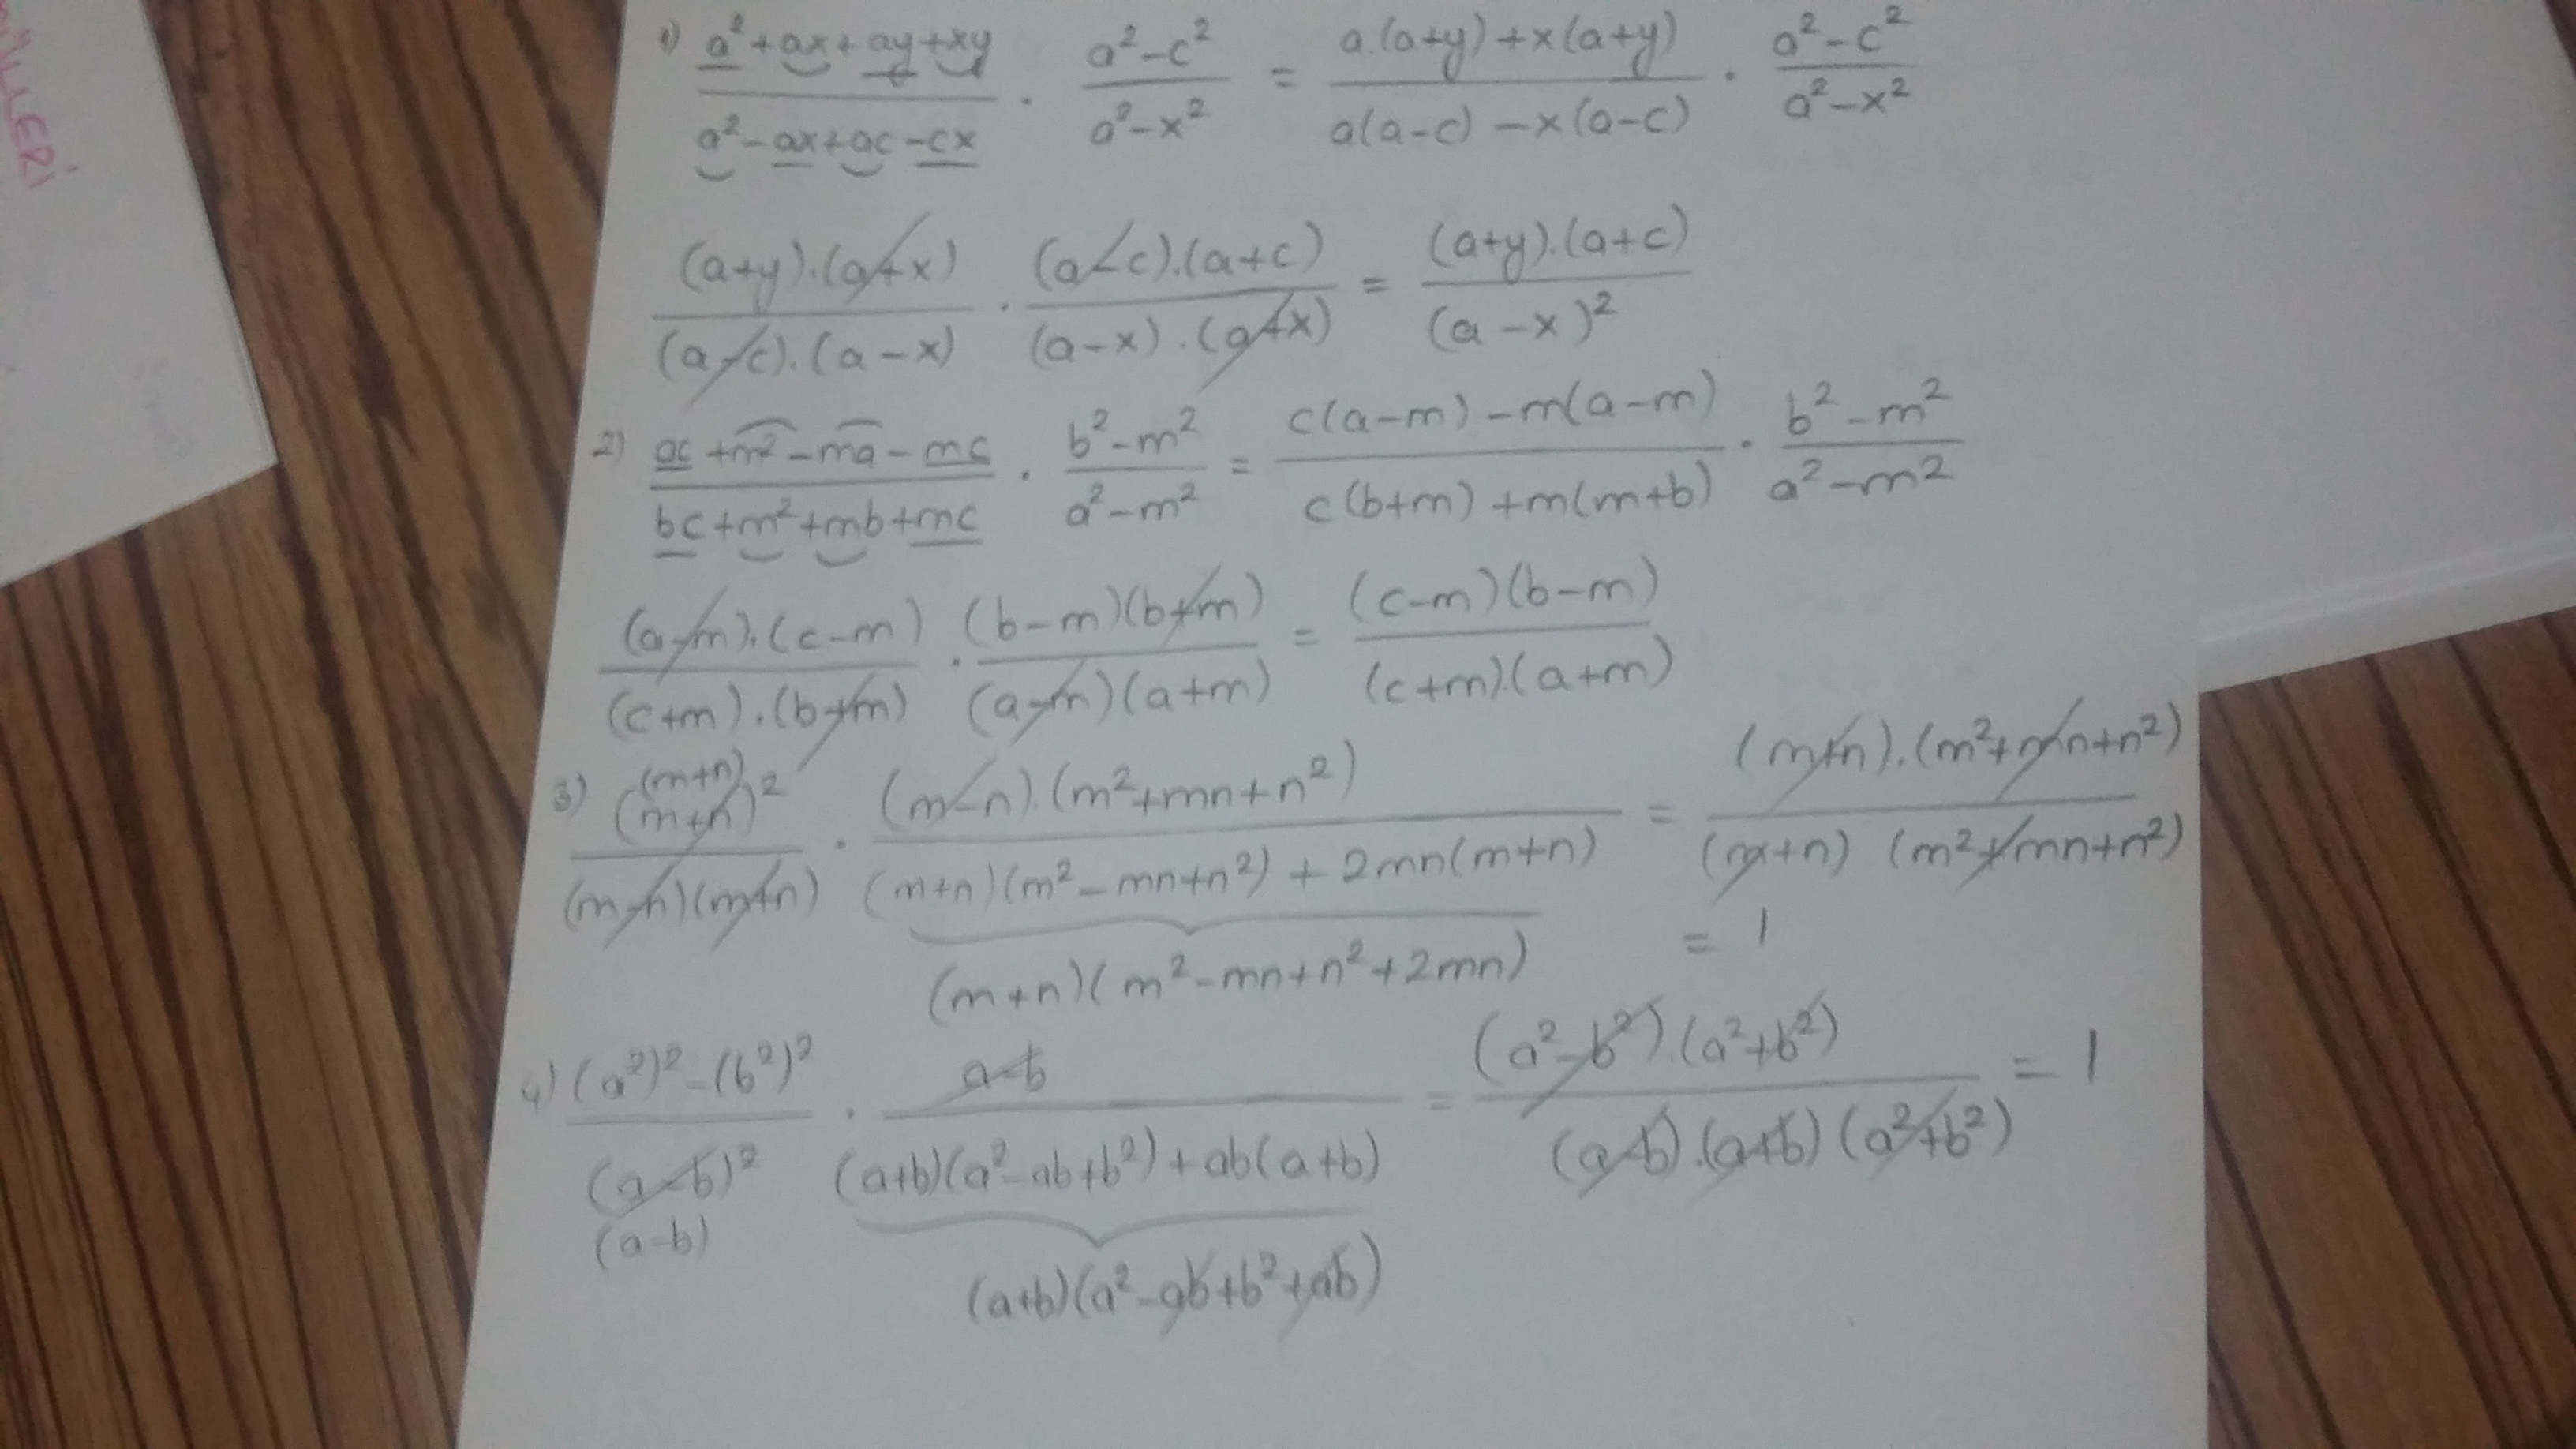 MLLERİ
1) (a²+ax+ay+xy)/(a²-ax+ac-cx) . (a²-c²)/(a²-x²) = (a.(a+y)+x(a+y))/(a(a-c)-x(a-c)) . (a²-c²)/(a²-x²)
((a+y).(a+x))/((a-c).(a-x)) . ((a-c).(a+c))/((a-x).(a+x)) = ((a+y).(a+c))/((a-x)²)
2) (ac+m²-ma-mc)/(bc+m²+mb+mc) . (b²-m²)/(a²-m²) = (c(a-m)-m(a-m))/(c(b+m)+m(m+b)) . (b²-m²)/(a²-m²)
((a-m).(c-m))/((c+m).(b+m)) . ((b-m)(b+m))/((a-m)(a+m)) = ((c-m)(b-m))/((c+m).(a+m))
(m+n)
3) (m+n)²/((m-n)(m+n)) . ((m-n).(m²+mn+n²))/((m+n)(m²-mn+n²)+2mn(m+n)) = ((m+n).(m²+mn+n²))/((m+n)(m²+mn+n²))
(m+n)(m²-mn+n²+2mn)
= 1
4) ((a²)²-(b²)²)/((a-b)²) . (a-b)/((a+b)(a²-ab+b²)+ab(a+b)) = ((a²-b²).(a²+b²))/((a-b).(a+b)(a²+b²)) = 1
(a-b)
(a+b)(a²-ab+b²+ab)